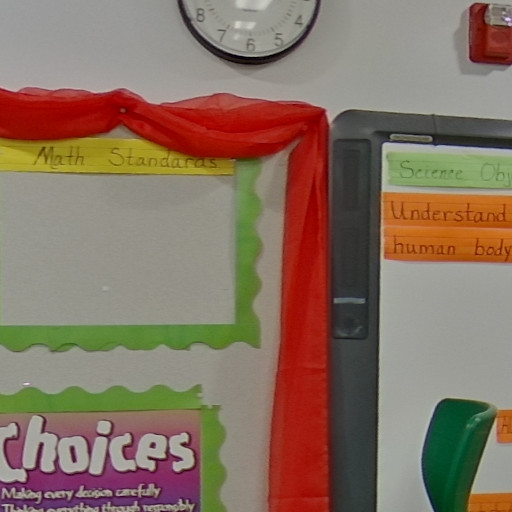 8 7 6 5 4
Math Standards
Science Obj
Understand
human body
Choices
Making every decision carefully
Thinking everything through responsibly